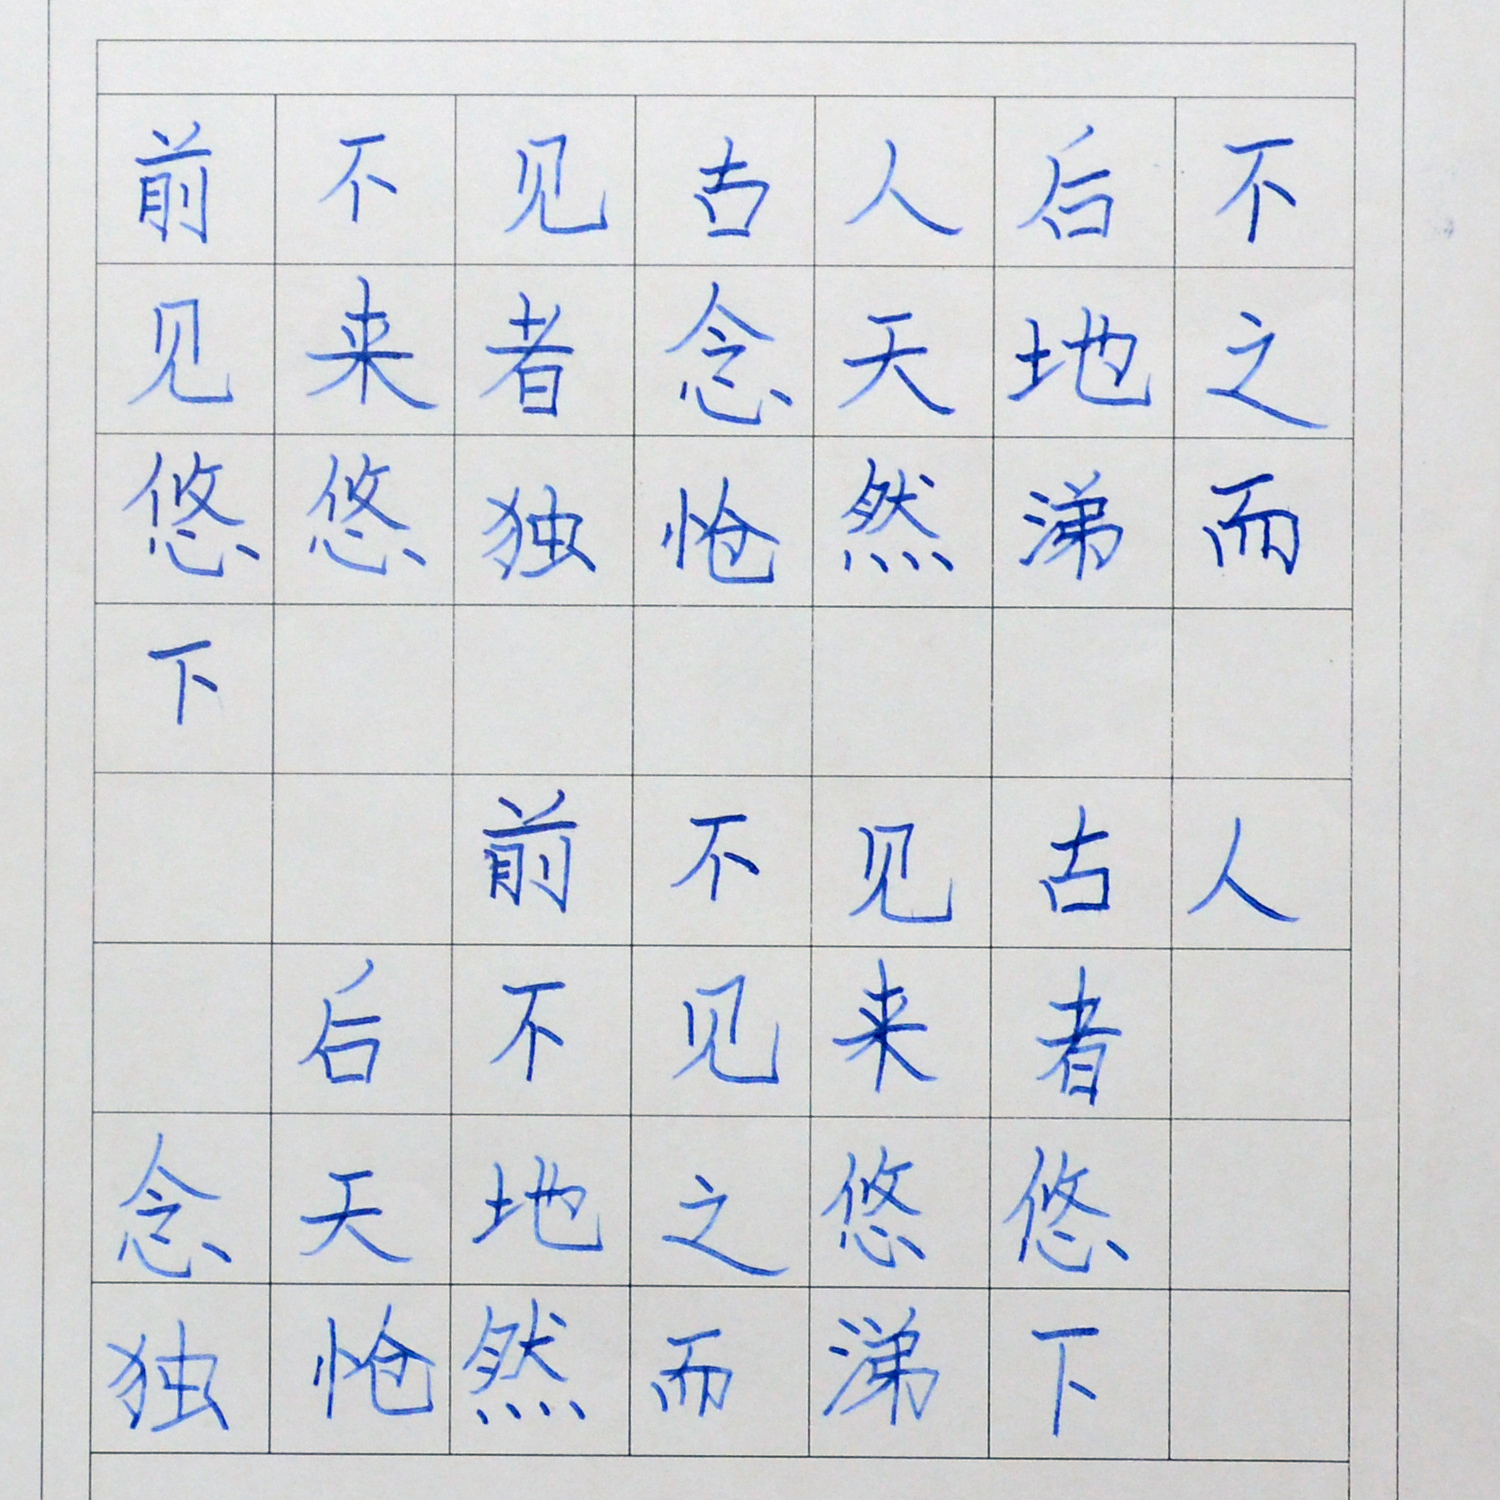 前不见古人后不
见来者念天地之
悠悠独怆然涕而
下
前不见古人
后不见来者
念天地之悠悠
独怆然而涕下